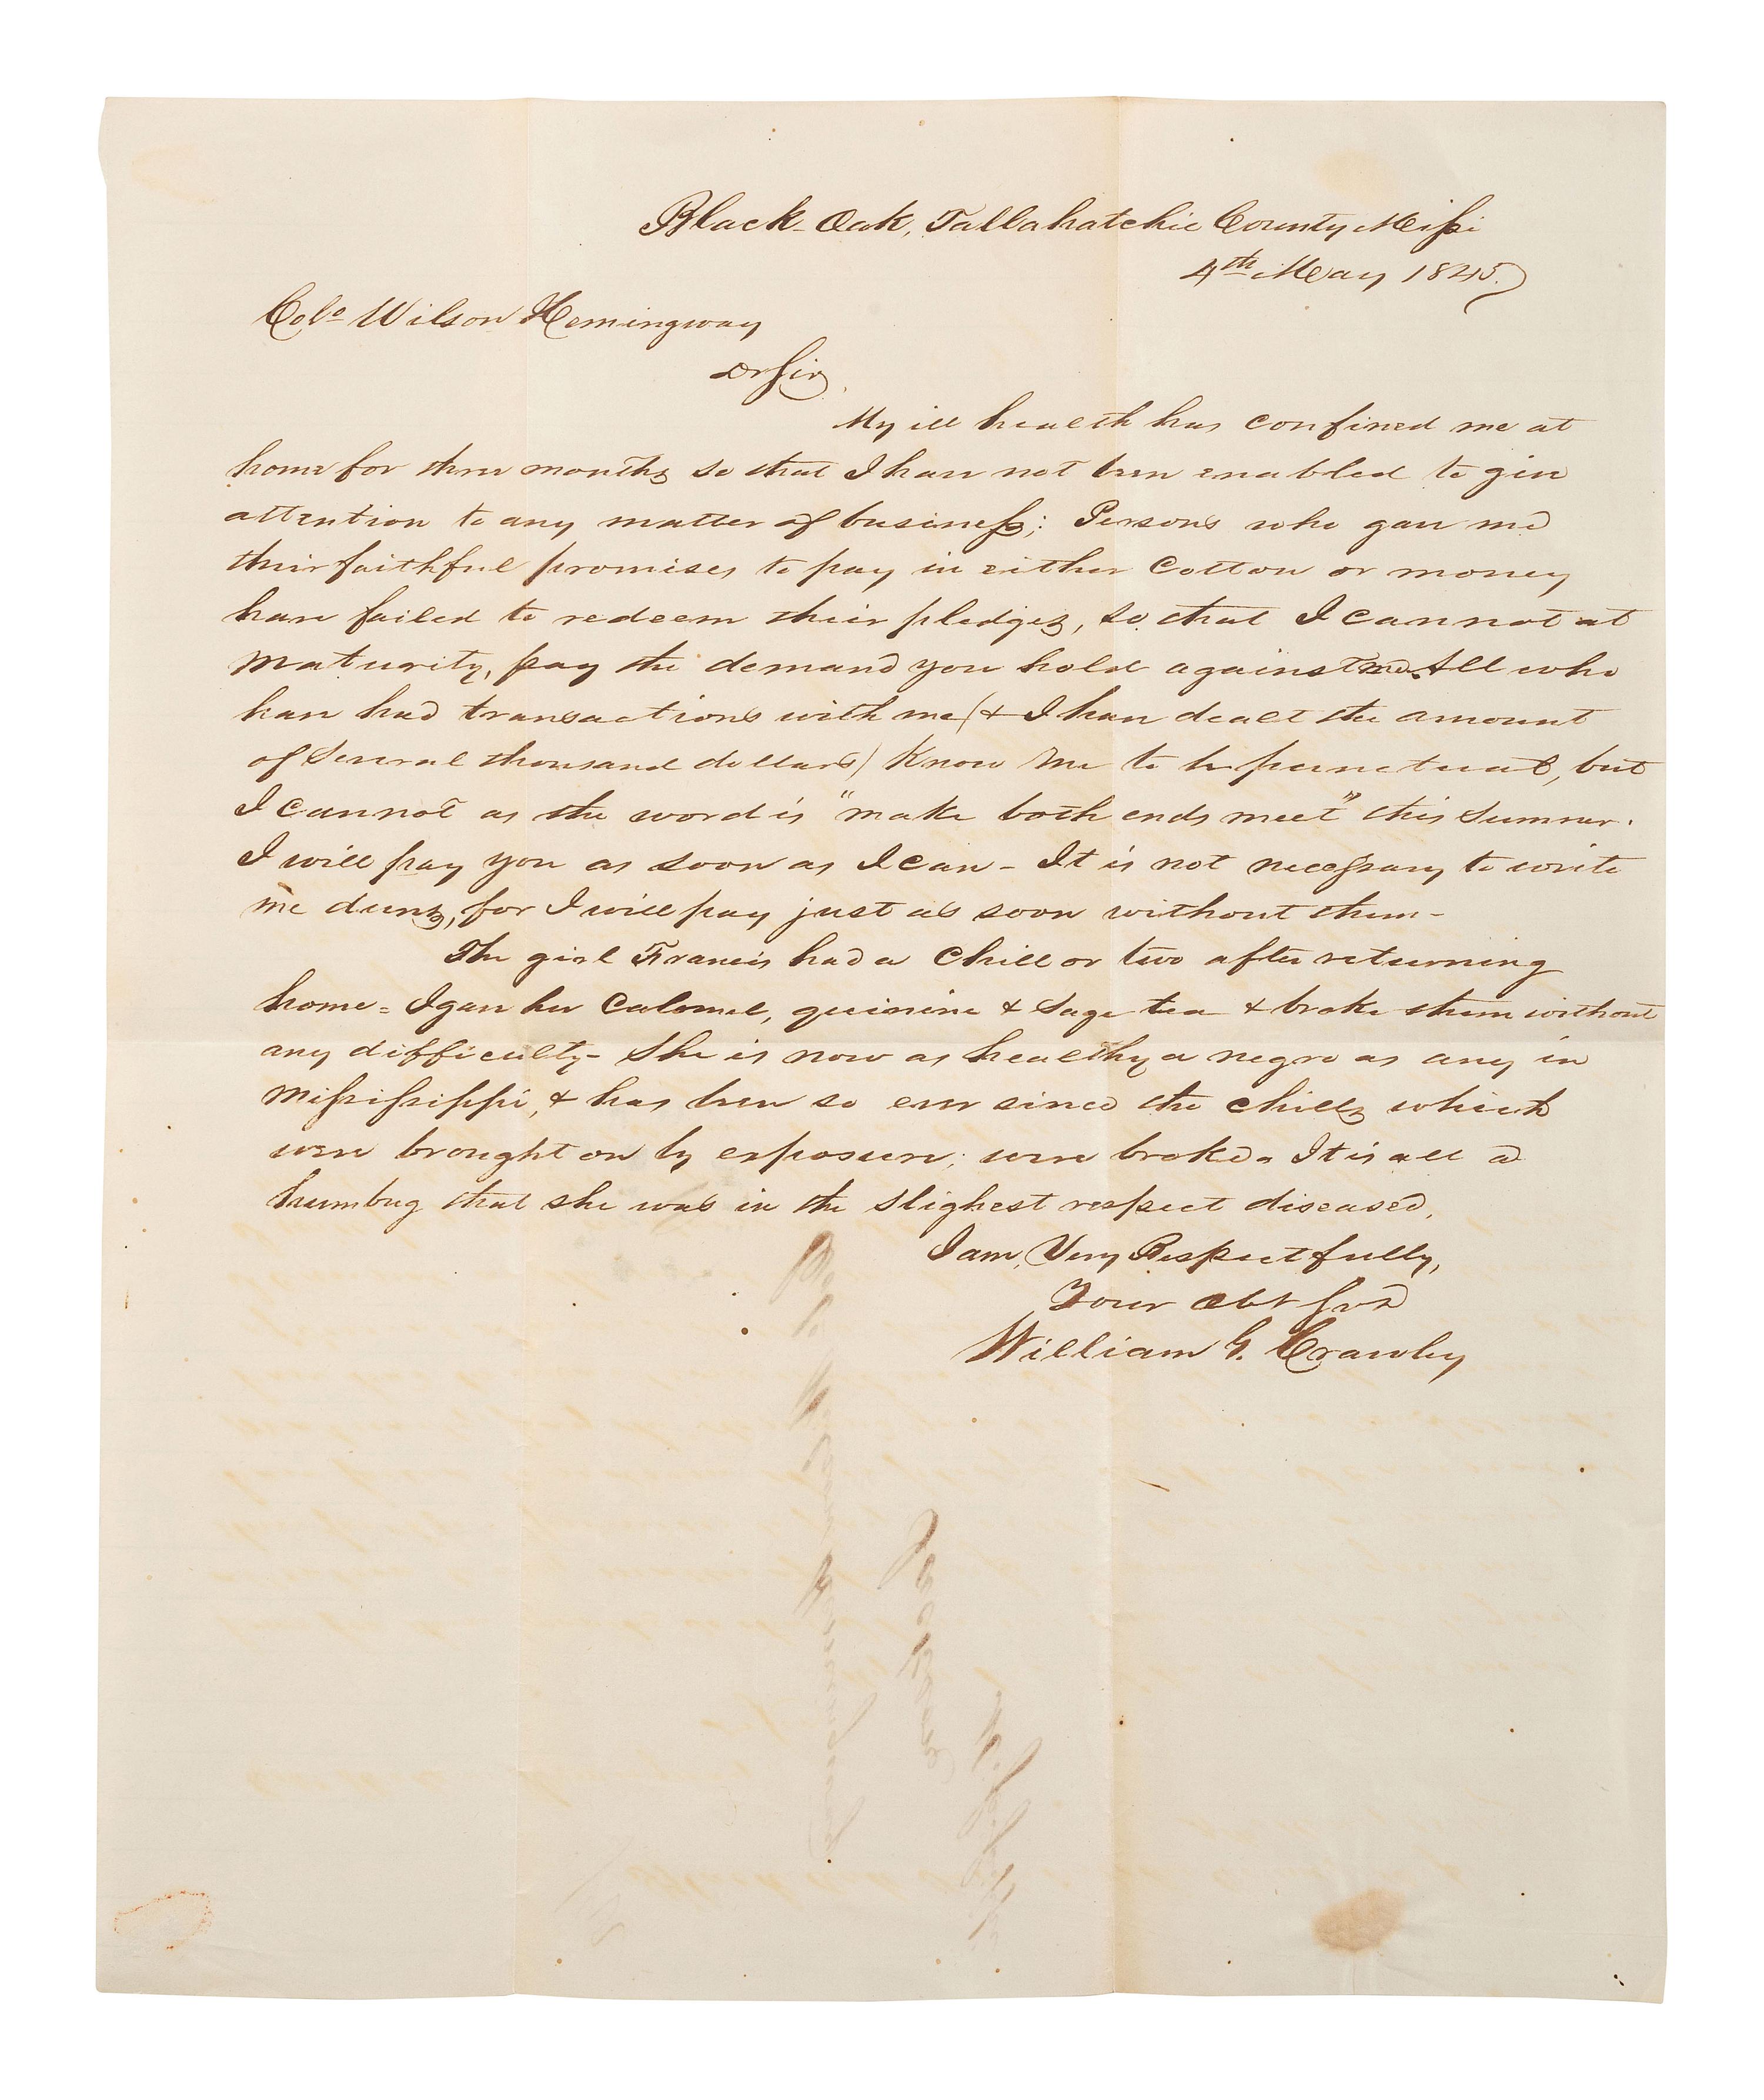 Black-Oak, Tallahatchie County Missi
4th May 1845.
Colo Wilson Hemingway
Dr Sir,
My ill health has confined me at
home for three months so that I have not been enabled to give
attention to any matter of business; Persons who gave me
their faithful promises to pay in either Cotton or money
have failed to redeem their pledges, so that I cannot at
maturity, pay the demand you hold against me. All who
have had transactions with me (& I have dealt the amount
of several thousand dollars) know me to be punctual, but
I cannot as the word is "make both ends meet" this Summer.
I will pay you as soon as I can - It is not necessary to write
me duns, for I will pay just as soon without them -
The girl Francis had a chill or two after returning
home - I gave her Calomel, quinine & sage tea & broke them without
any difficulty - She is now as healthy a negro as any in
Mississippi, & has been so ever since the chills which
were brought on by exposure; were broke. It is all a
humbug that she was in the slighest respect diseased.
I am, Very Respectfully,
Your obt Svt
William G. Crawley